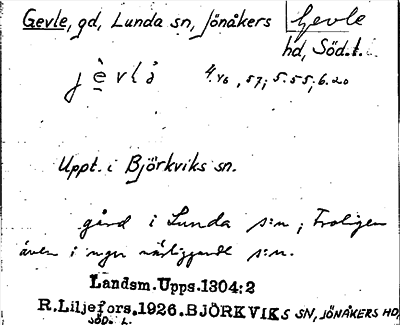 Gevle, gd, Lunda sn, Jönåkers
Gevle
hd, Söd.l.
4.40, 57; 5.55; 6.20
Uppt. i Björkviks sn.
gård i Lunda s:n; Troligen
även i ngn närliggande s:n.
Landsm.Upps.1304:2
R.Liljefors.1926.BJÖRKVIKS SN, JÖNÅKERS HD,
SÖD. L.